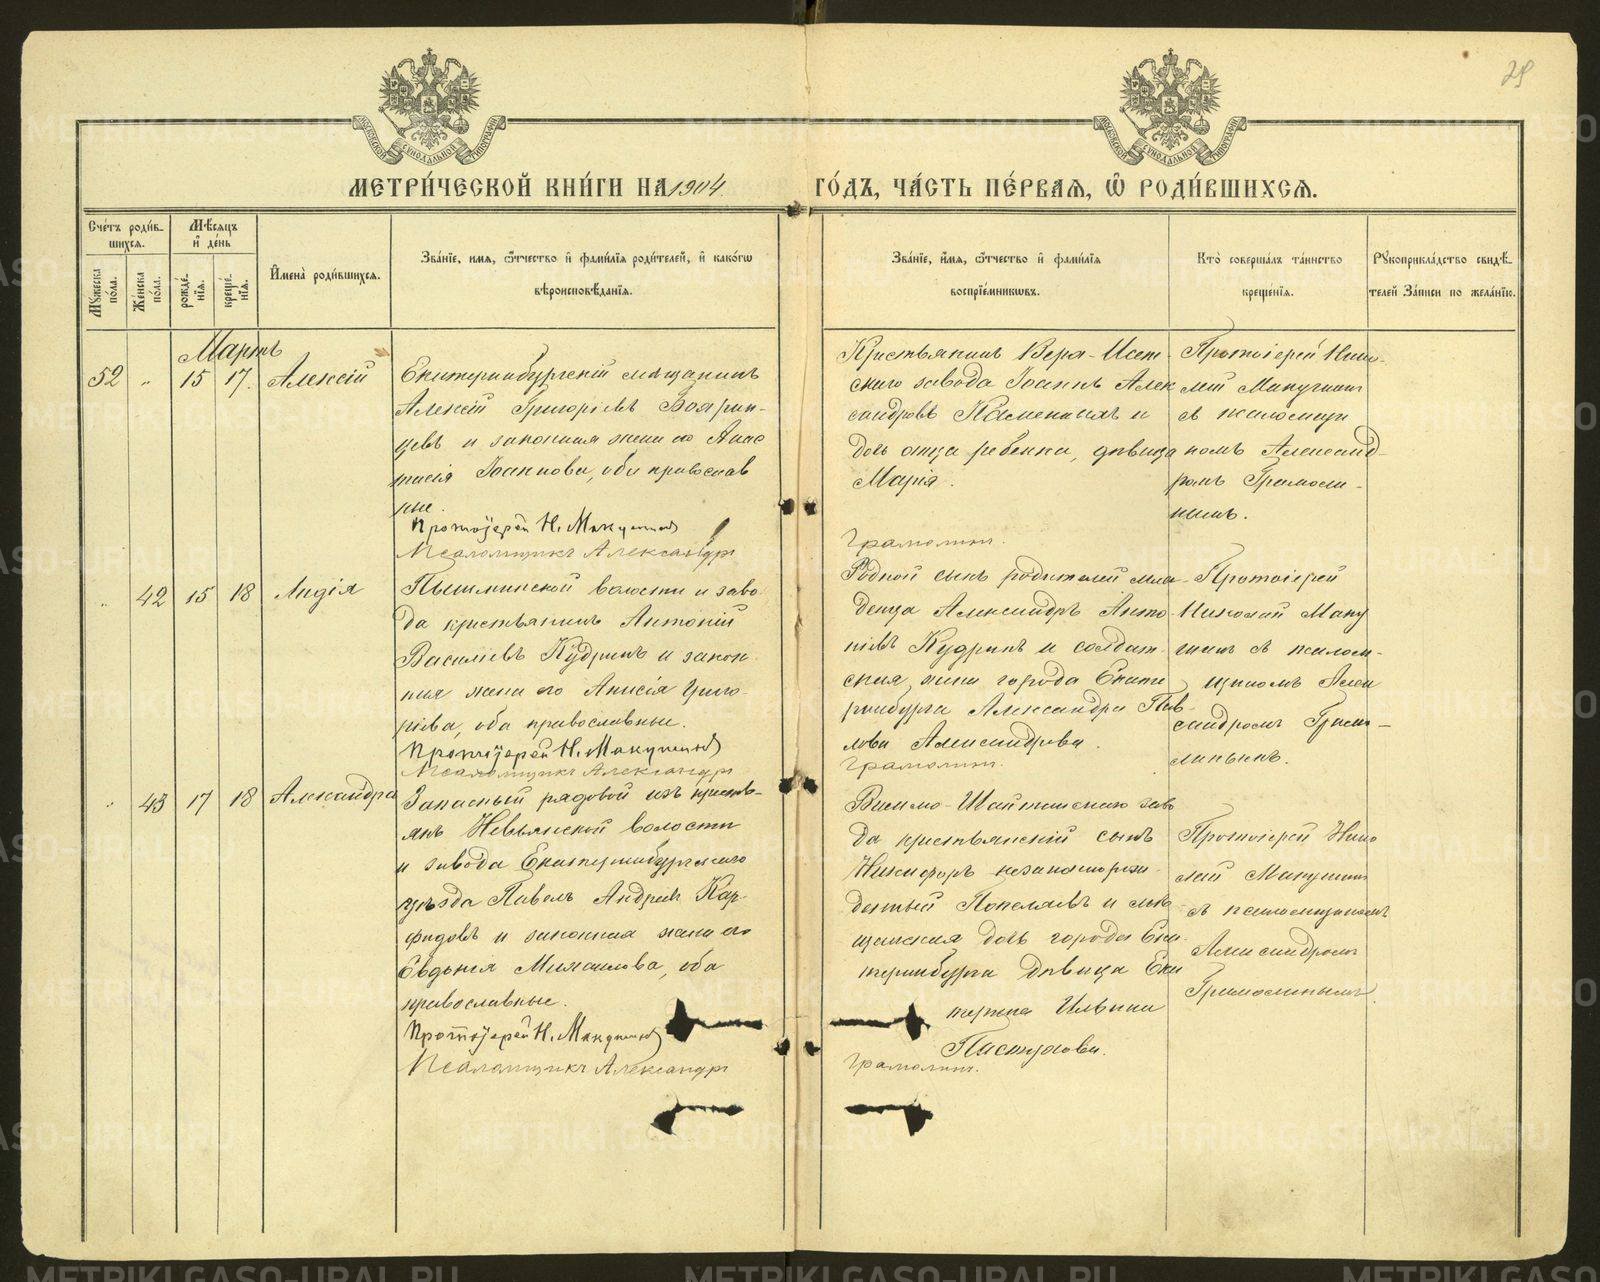 29
МЕТРИ́ЧЕСКОЙ КНИ́ГИ НА 1904
ГО́ДЪ, ЧА́СТЬ ПЕ́РВАЯ, Ѿ РОДИ́ВШИХСЯ.
Сче́тъ роди́в-
шихся.
Мѣ́сяцъ
и҆ де́нь
Мꙋ́жеска по́ла.
Же́нска по́ла.
рожде́нїя.
креще́нїя.
И҆мена̀ роди́вшихся.
Зва́нїе, имя, ѻ҆́тчество и҆ фами́лїя роди́телей, и҆ како́гѡ
вѣроисповѣ́данїя.
Зва́нїе, и҆́мя, ѻ҆́тчество и҆ фами́лїя
воспрїе́мникѡвъ.
Кто̀ соверша́лъ та́инство
креще́нїя.
Рꙋкоприкла́дство свидѣ́-
телей За́писи по жела́нїю.
Мартъ
52 " 15 17. Алексій
Екатеринбургскій мѣщанинъ
Алексій Григоріевъ Боярин-
цевъ и законная жена его Анас
тасія Іоаннова, оба православ
ные.
Протоіерей Н. Макушинъ
Псаломщикъ Александръ
Крестьянинъ Верх-Исет-
скаго завода Іоаннъ Алек
сандровъ Каменныхъ и
дочь отца ребенка, дѣвица
Марія.
Грамолин.
Протоіерей Нико-
лай Макушинъ
съ псаломщи
комъ Александ-
ромъ Грамоли-
нымъ.
" 42 15 18 Лидія
Пышминской волости и заво
да крестьянинъ Антоній
Василіевъ Кудринъ и закон
ная жена его Анисія Григо-
ріева, оба православные.
Протоіерей Н. Макушинъ
Псаломщикъ Александръ
Родной сынъ родителей мла-
денца Александръ Анто-
ніевъ Кудринъ и солдат-
ская жена города Екате
ринбурга Александра Пав-
лова Александрова.
Грамолин.
Протоіерей
Николай Маку
шинъ съ псалом-
щикомъ Алек
сандромъ Грамо-
линымъ.
" 43 17 18 Александра
Запасный рядовой изъ кресть-
янъ Невьянской волости
и завода Екатеринбургскаго
уѣзда Павелъ Андреевъ Кар-
фидовъ и законная жена его
Евдокія Михаилова, оба
православные.
Протоіерей Н. Макушинъ
Псаломщикъ Александръ
Висимо-Шайтанскаго заво
да крестьянскій сынъ
Никифоръ незаконорож-
денный Попелаевъ и мѣ
щанская дочь города Ека
теринбурга дѣвица Ека
терина Ильина
Пастухова.
Грамолин.
Протоіерей Нико
лай Макушинъ
съ псаломщикомъ
Александромъ
Грамолинымъ.